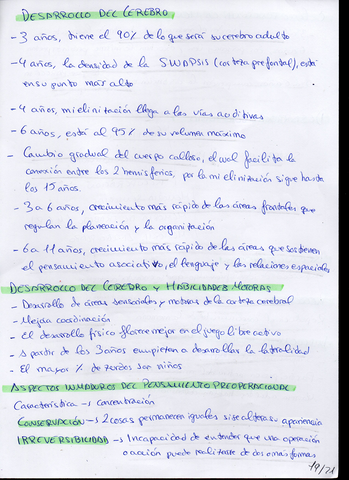 DESARROLLO DEL CEREBRO
- 3 años, tiene el 90% de lo que será su cerebro adulto
- 4 años, la densidad de la SINAPSIS (corteza prefontal), está
en su punto más alto
- 4 años, mielinitación llega a las vías auditivas
- 6 años, está al 95% de su volumen máximo
- Cambio gradual del cuerpo calloso, el cual facilita la
conexión entre los 2 hemisferios, por la mielinitación sigue hasta
los 15 años.
- 3 a 6 años, crecimiento más rápido de las áreas frontales que
regulan la planeación y la organitación
- 6 a 11 años, crecimiento más rápido de las áreas que sostienen
el pensamiento asociativo, el lenguaje y las relaciones espaciales
DESARROLLO DEL CEREBRO Y HABILIDADES MOTORAS
- Desarrollo de áreas sensoriales y motoras de la corteza cerebral
- Mejora coordinación
- El desarrollo físico florece mejor en el juego libre activo
- A partir de los 3 años empietan a desarrollar la lateralidad
- El mayor % de zurdos son niños
ASPECTOS INMADUROS DEL PENSAMIENTO PREOPERACIONAL
Característica → concentración
CONSERVACIÓN → 2 cosas permanecen iguales si se altera su apariencia
IRREVERSIBILIDAD → Incapacidad de entender que una operación
o acción puede realitarse de dos o más formas
19/21